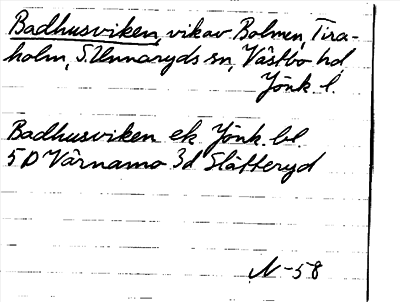 Badhusviken, vik av Bolmen, Tira-
holm, S. Unnaryds sn, Västbo hd,
Jönk. l.
Badhusviken ek Jönk. bl.
5 D Värnamo 3d Slätteryd
N-58